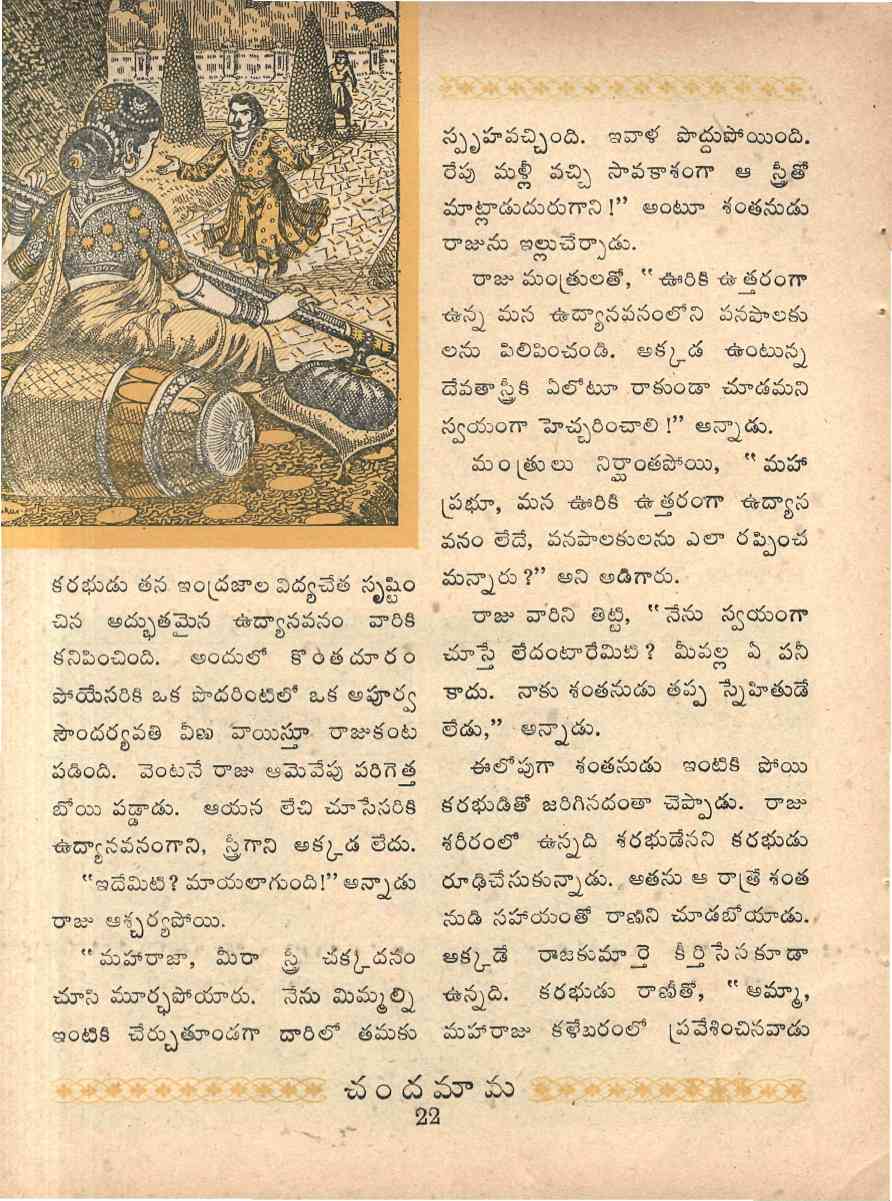 కరభుడు తన ఇంద్రజాల విద్యచేత సృష్టిం
చిన అద్భుతమైన ఉద్యానవనం వారికి
కనిపించింది. అందులో కొంతదూరం
పోయేసరికి ఒక పొదరింటిలో ఒక అపూర్వ
సౌందర్యవతి వీణ వాయిస్తూ రాజుకంట
పడింది. వెంటనే రాజు ఆమెవేపు పరిగెత్త
బోయి పడ్డాడు. ఆయన లేచి చూసేసరికి
ఉద్యానవనంగాని, స్త్రీగాని అక్కడ లేదు.
“ఇదేమిటి? మాయలాగుంది!” అన్నాడు
రాజు ఆశ్చర్యపోయి.
“మహారాజా, మీరా స్త్రీ చక్కదనం
చూసి మూర్ఛపోయారు. నేను మిమ్మల్ని
ఇంటికి చేర్చుతూండగా దారిలో తమకు
స్పృహవచ్చింది. ఇవాళ పొద్దుపోయింది.
రేపు మళ్లీ వచ్చి సావకాశంగా ఆ స్త్రీతో
మాట్లాడుదురుగాని!” అంటూ శంతనుడు
రాజును ఇల్లుచేర్చాడు.
రాజు మంత్రులతో, “ఊరికి ఉత్తరంగా
ఉన్న మన ఉద్యానవనంలోని వనపాలకు
లను పిలిపించండి. అక్కడ ఉంటున్న
దేవతాస్త్రీకి ఏలోటూ రాకుండా చూడమని
స్వయంగా హెచ్చరించాలి!” అన్నాడు.
మంత్రులు నిర్ఘాంతపోయి, “మహా
ప్రభూ, మన ఊరికి ఉత్తరంగా ఉద్యాన
వనం లేదే, వనపాలకులను ఎలా రప్పించ
మన్నారు?” అని అడిగారు.
రాజు వారిని తిట్టి, “నేను స్వయంగా
చూస్తే లేదంటారేమిటి? మీవల్ల ఏ పనీ
కాదు. నాకు శంతనుడు తప్ప స్నేహితుడే
లేడు,” అన్నాడు.
ఈలోపుగా శంతనుడు ఇంటికి పోయి
కరభుడితో జరిగినదంతా చెప్పాడు. రాజు
శరీరంలో ఉన్నది శరభుడేనని కరభుడు
రూఢిచేసుకున్నాడు. అతను ఆ రాత్రే శంత
నుడి సహాయంతో రాణిని చూడబోయాడు.
అక్కడే రాజకుమార్తె కీర్తిసేనకూడా
ఉన్నది. కరభుడు రాణీతో, “అమ్మా,
మహారాజు కళేబరంలో ప్రవేశించినవాడు
చందమామ
22